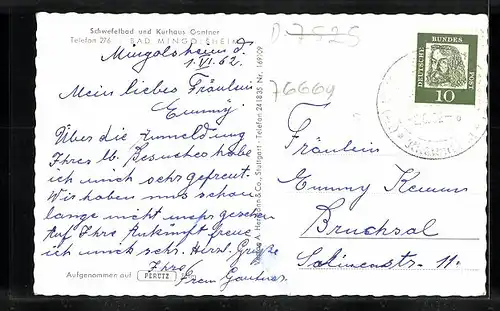 Schwefelbad und Kurhaus Gantner
Telefon 276 BAD MINGOLSHEIM
Mingolsheim d.
1.VI.62.
Mein liebes Fräulein
Emmy.
Über die Anmeldung
Ihres lb. Besuches habe
ich mich sehr gefreut.
Wir haben uns schon
lange nicht mehr gesehen
Auf Ihre Ankunft freue
ich mich sehr. Herzl. Grüße
Ihre
Frau Gantner.
Aufgenommen auf PERUTZ Film
Verlag A. & Co., Stuttgart - Telefon 241835 Nr. 169109
D-7525
76669
DEUTSCHE BUNDESPOST
10
Fräulein
Emmy
Bruchsal
Salinenstr. 11.